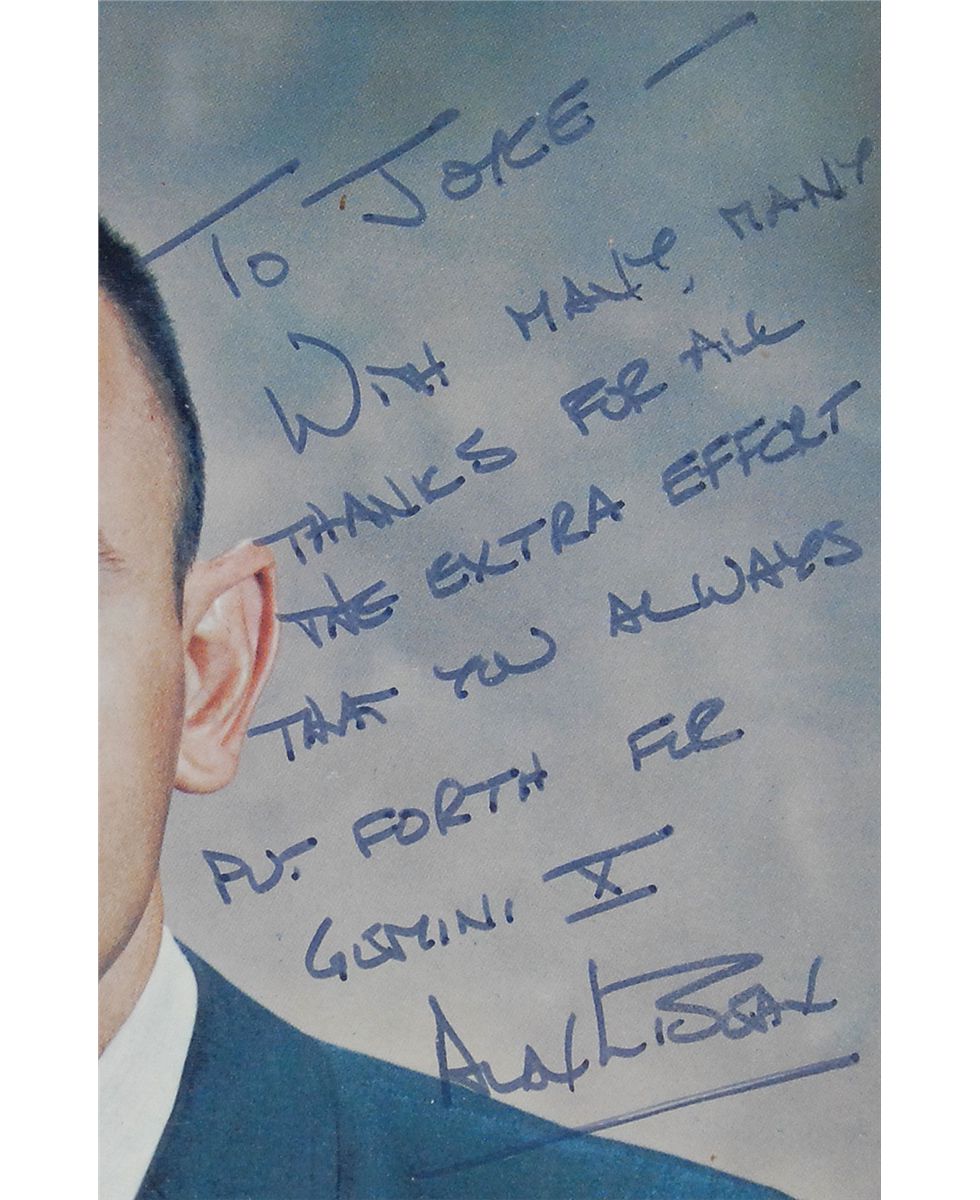 TO JOYCE —
WITH MANY, MANY
THANKS FOR ALL
THE EXTRA EFFORT
THAT YOU ALWAYS
PUT FORTH FOR
GEMINI X
ALAN L BEAN